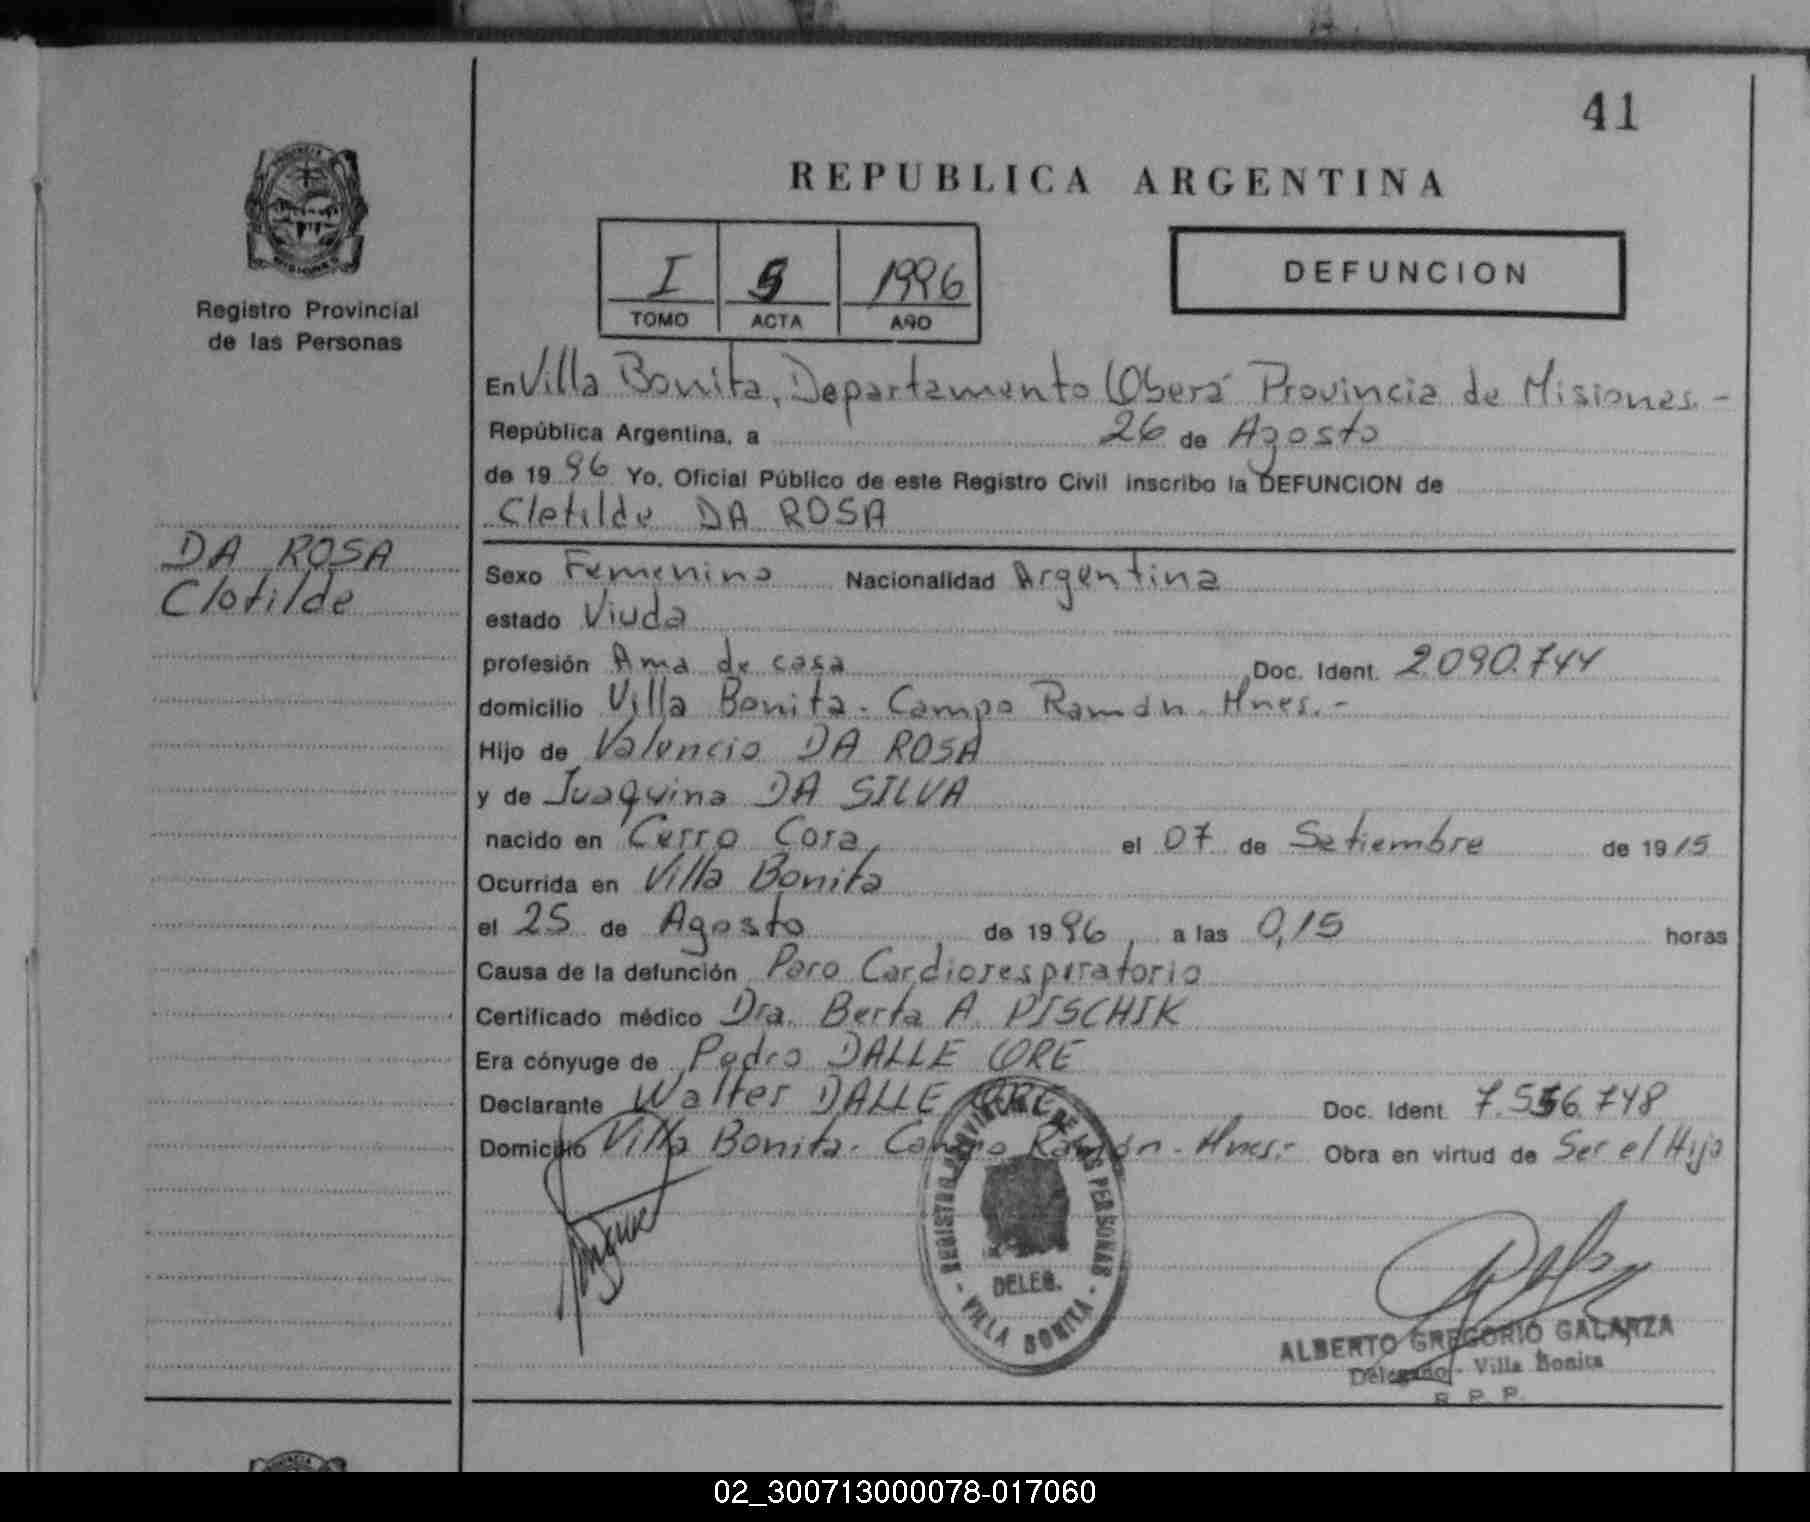 41
REPUBLICA ARGENTINA
I 5 1996
TOMO ACTA AÑO
DEFUNCION
PROVINCIA
MISIONES
Registro Provincial
de las Personas
DA ROSA
Clotilde
En Villa Bonita, Departamento Oberá Provincia de Misiones.-
República Argentina, a 26 de Agosto
de 1996 Yo, Oficial Público de este Registro Civil inscribo la DEFUNCION de
Clotilde DA ROSA
Sexo Femenino Nacionalidad Argentina
estado Viuda
profesión Ama de casa Doc. Ident. 2.090.744
domicilio Villa Bonita. Campo Ramón. Mnes.-
Hijo de Valencio DA ROSA
y de Juaquina DA SILVA
nacido en Cerro Cora, el 07 de Setiembre de 1915
Ocurrida en Villa Bonita
el 25 de Agosto de 1996, a las 0,15 horas
Causa de la defunción Paro Cardiorespiratorio
Certificado médico Dra. Berta A. PISCHIK
Era cónyuge de Pedro DALLE ORE
Declarante Walter DALLE ORE Doc. Ident. 7.556.748
Domicilio Villa Bonita. Campo Ramón. Mnes.- Obra en virtud de Ser el Hijo
REGISTRO PROVINCIAL DE LAS PERSONAS
DELEG.
- VILLA BONITA -
ALBERTO GREGORIO GALARZA
Delegado - Villa Bonita
R. P. P.
02_300713000078-017060